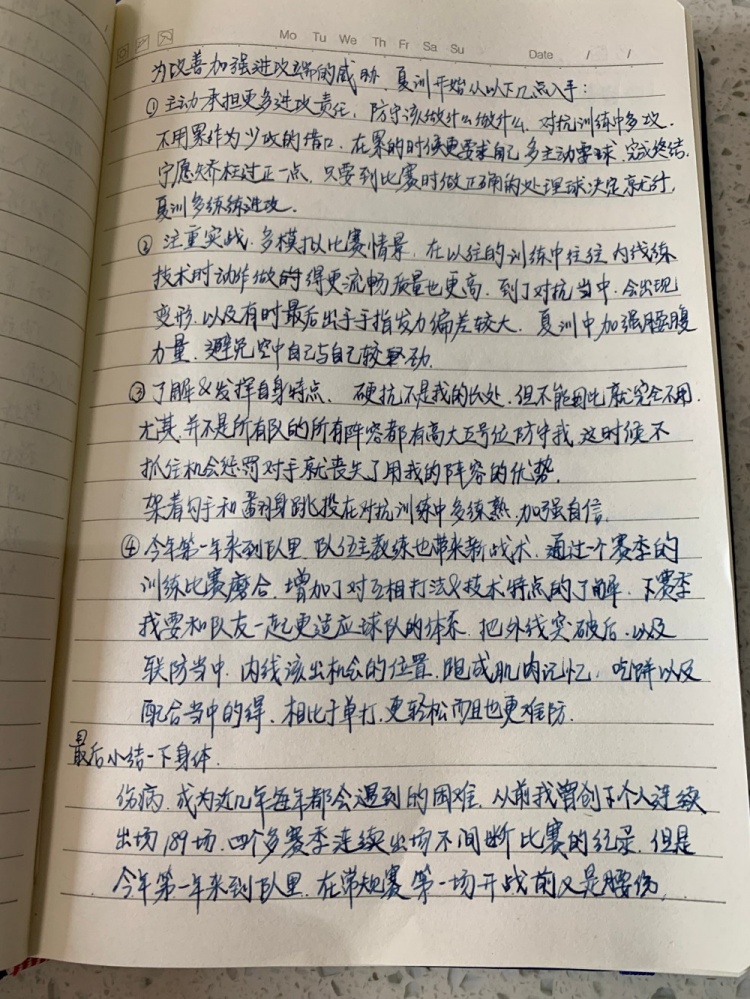 Mo Tu We Th Fr Sa Su Date / /
为改善加强进攻端的威胁，夏训开始从以下几点入手：
① 主动承担更多进攻责任，防守该做什么做什么，对抗训练中多攻，
不用累作为少攻的借口，在累的时候更要求自己多主动要球，完成终结，
宁愿矫枉过正一点，只要到比赛时做正确的处理球决定就行，
夏训多练练进攻．
② 注重实战，多模拟比赛情景，在以往的训练中往往内线练
技术时动作做的得更流畅质量也更高，到了对抗当中，会出现
变形，以及有时最后出手手指发力偏差较大，夏训中加强腰腹
力量，避免空中自己与自己较紧劲．
③ 了解&发挥自身特点， 硬抗不是我的长处，但不能因此就完全不用，
尤其，并不是所有队的所有阵容都有高大五号位防守我，这时候不
抓住机会惩罚对手就丧失了用我的阵容的优势．
架着勾手和翻身跳投在对抗训练中多练熟，加强自信．
④ 今年第一年来到队里，队伍主教练也带来新战术，通过一个赛季的
训练比赛磨合，增加了对互相打法&技术特点的了解，下赛季
我要和队友一起更适应球队的体系，把外线突破后，以及
联防当中，内线该出机会的位置，跑成肌肉记忆，吃饼以及
配合当中的得，相比于单打，更轻松而且也更难防．
最后小结一下身体．
伤病，成为近几年每年都会遇到的困难，从前我曾创下个人连续
出场189场，四个多赛季连续出场不间断比赛的纪录，但是
今年第一年来到队里，在常规赛第一场开战前又是腰伤，